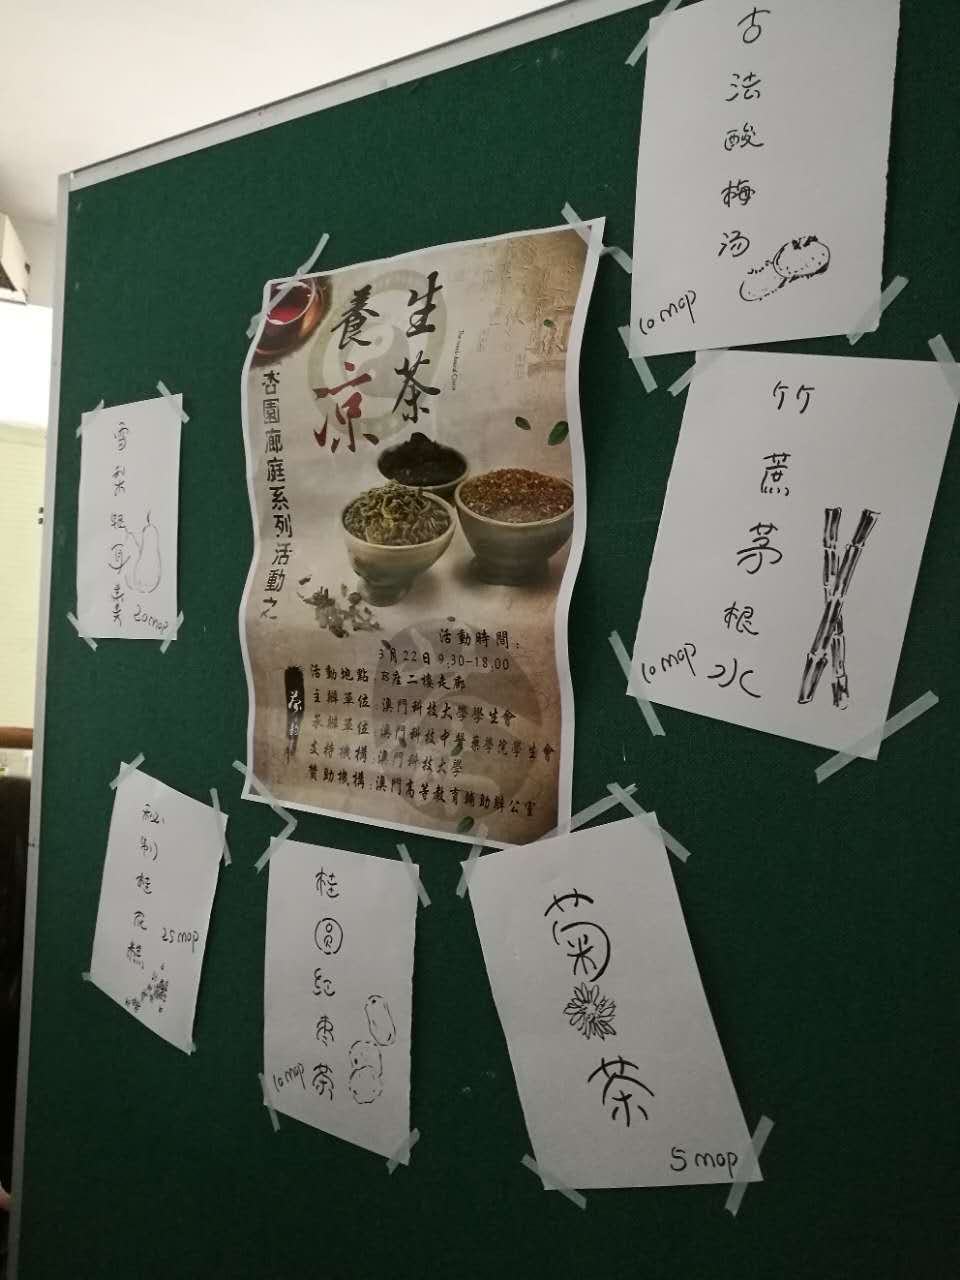 古法酸梅汤
10 mop
養生
涼茶
杏園廊庭系列活動之
活動時間:
3月22日9.30-18.00
活動地點:B座二樓走廊
主辦單位:澳門科技大學學生會
承辦單位:澳門科技中醫藥學院學生會
支持機構:澳門科技大學
贊助機構:澳門高等教育輔助辦公室
竹蔗茅根水
10 mop
雪梨银耳羹
20 mop
秘制桂花糕
25 mop
桂圆红枣茶
10 mop
菊茶
5 mop